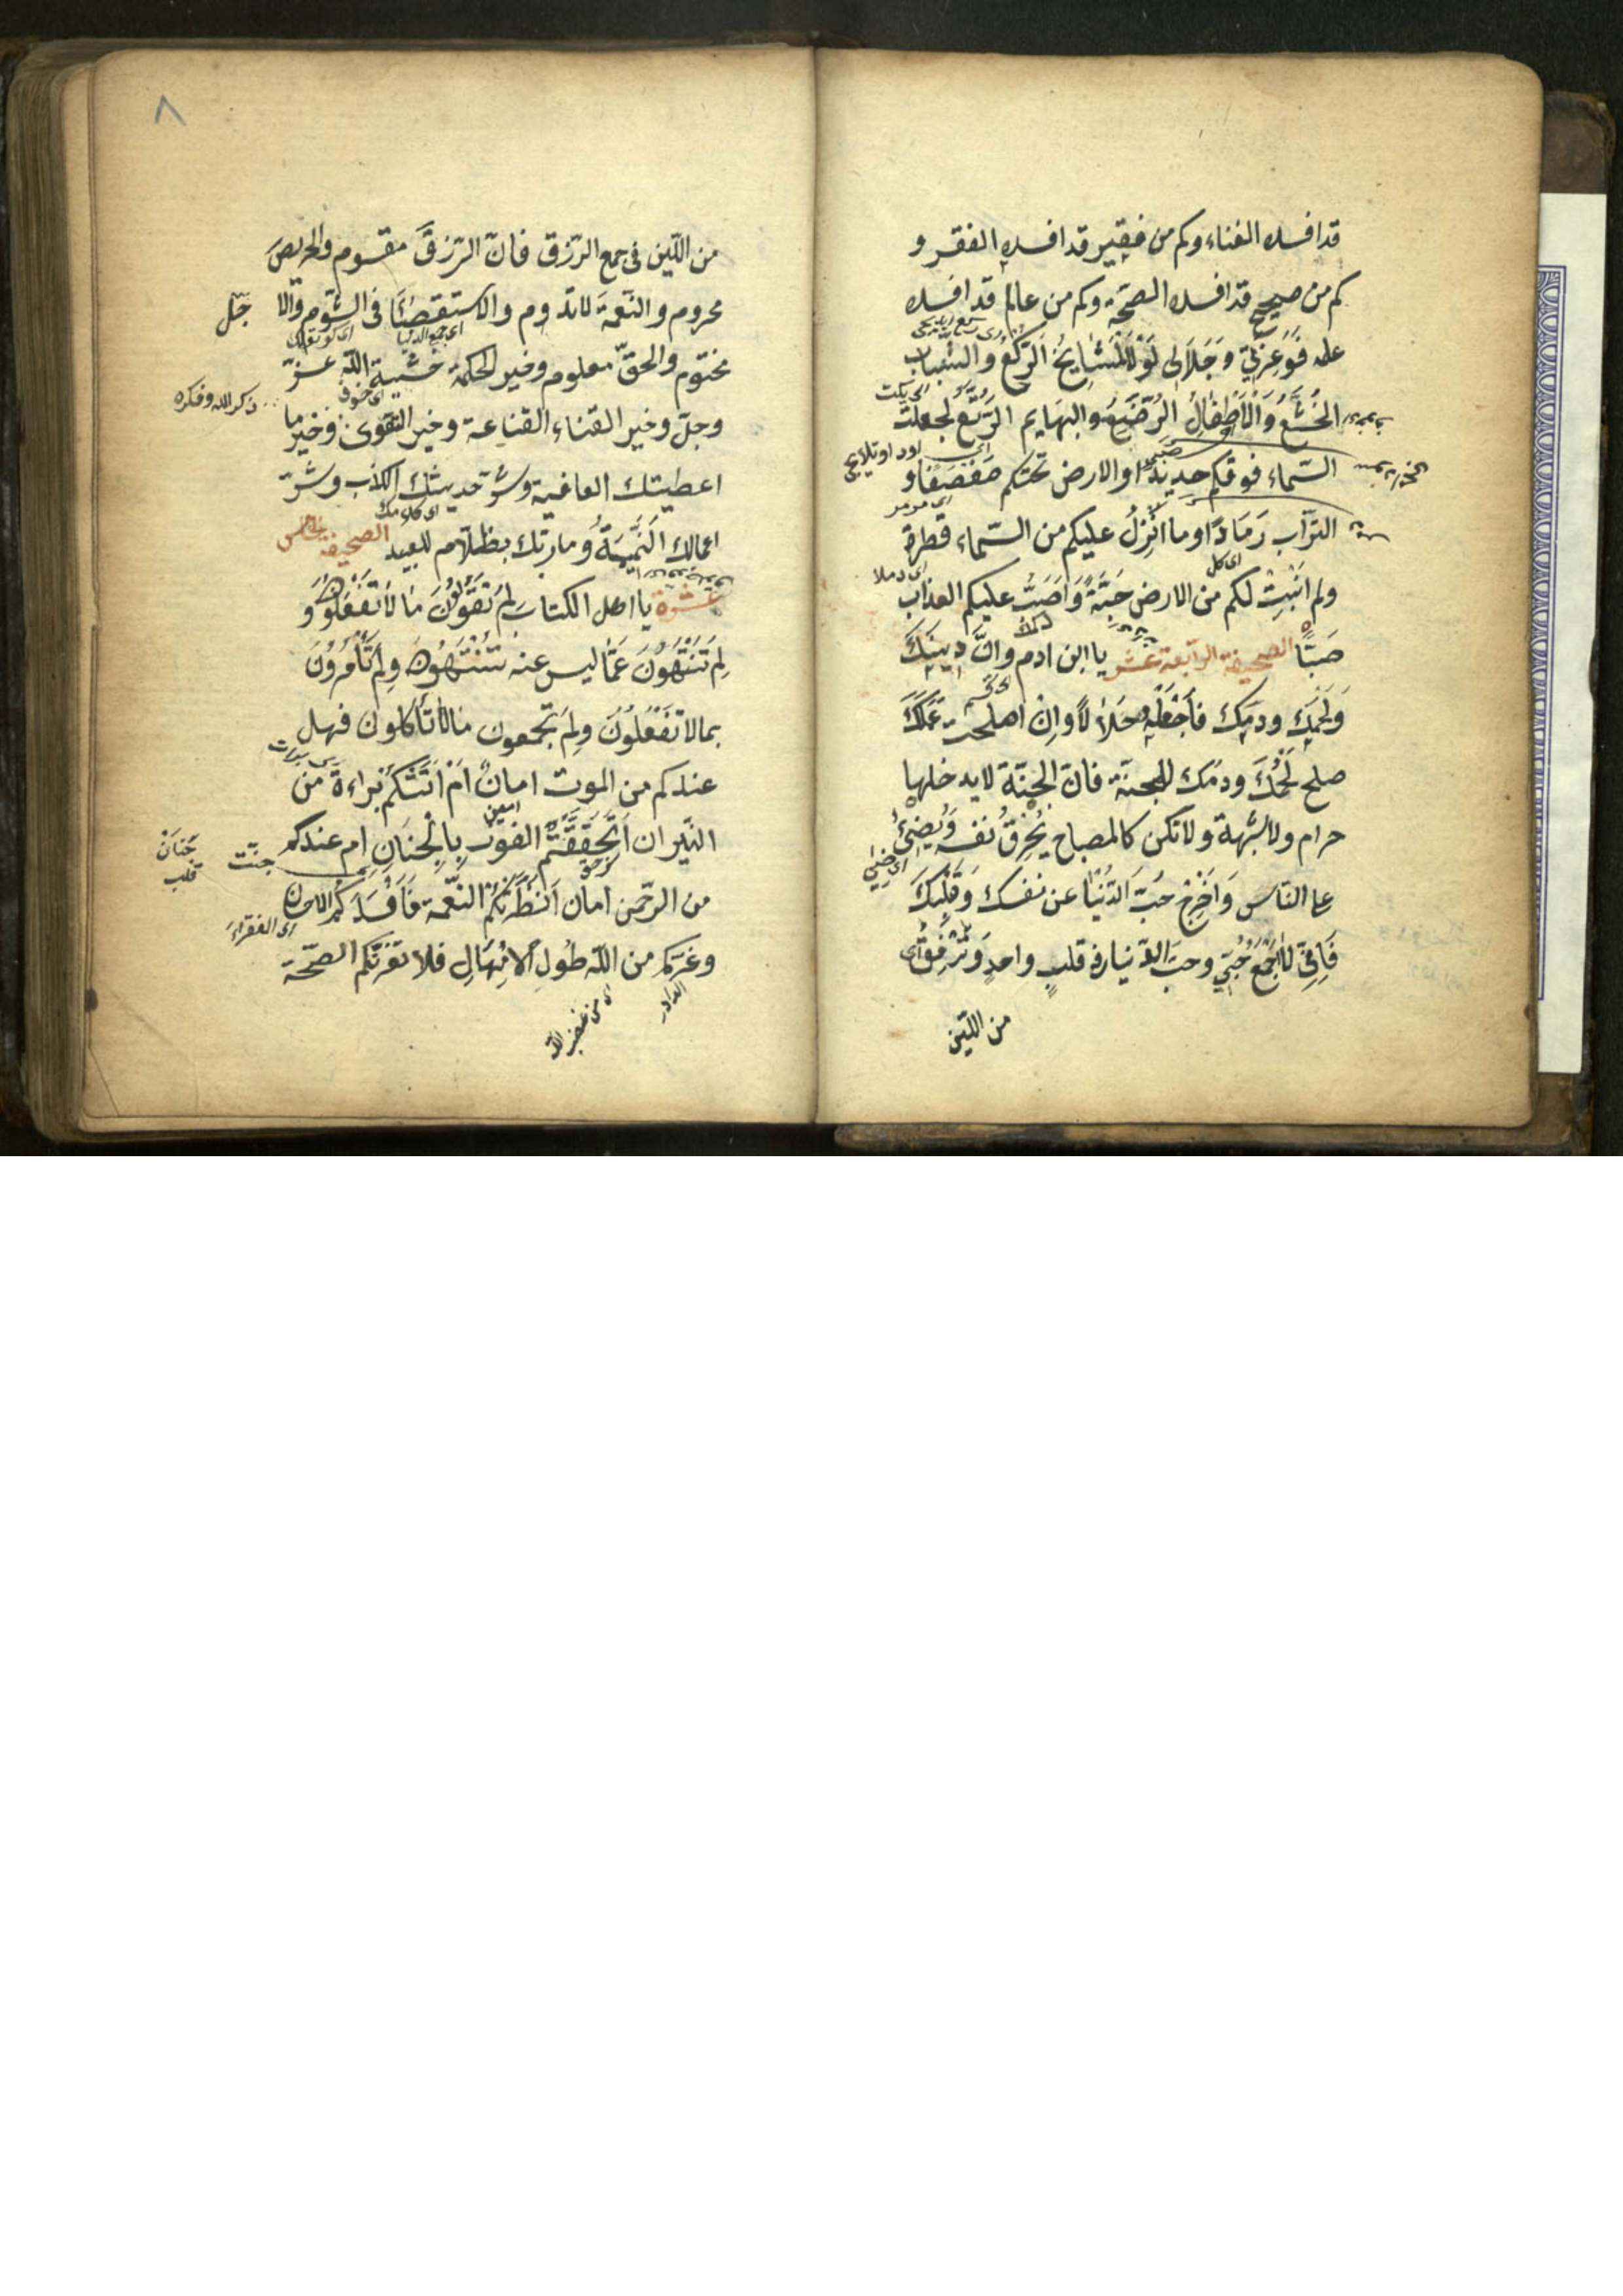 قد افسده الغناء وكم من فقير قد افسده الفقر و
كم من صحيح قد افسده الصحّة وكم من عالم قد افسده
علمه فَوَعِزَّتي وَجَلَالى لَوْلَا الْمَشَايخُ الرّكّعُ والشّباب
الخُشَّعُ وَالْاَطْفَالُ الرُّضَّعُ والبهايم الرُّتَّعُ لجعلت
السّماء فوقكم حديدًا والارض تحتكم صَفْصَفًا و
التراب رَمَادًا وما اُنْزِلُ عليكم من السّماء قطرة
ولم اُنْبِتْ لكم من الارض حَبَّةً وَاَصَبْتُ عليكم العذاب
صَبًّا الصحيفة الرّابعة عشر يا ابن ادم وانّ دينك
وَلَحْمِكَ ودمك فاجْعَلْهِ حَلَالًا واِنْ اصلحت عَمَلَكَ
صلح لَحْمُكَ ودمك للجنّة فانّ الجنّة لا يدخلها
حرام ولا شُبهة ولا تكن كالمصباح يُحْرِقُ نفسه وَيُضِئُ
على النّاس وَاَخْرِجْ حُبَّ الدّنْيَا عن نفسك وَقَلْبِكَ
فَاِنِّى لا اَجْمَعُ حُبِّي وحبّ الدّنيا في قلبٍ واحدٍ وَتَرَفَّقْ
اى كل
من اللّين
٨
من اللّين فى جمع الرّزق فانّ الرّزقَ مقسوم والحريصَ
محروم والنّعمة لا تدوم والاستقصاء فى الشّوم والا جل
مختوم والحقّ معلوم وخير الحكمة خشية اللّه عزّ
اى خوف
ذكر الله وفكره
وجلّ وخير الغناء القناعة وخير التقوى وخير ما
اعطيتك العافية وشرّ حديثك الكذب وشرّ
اعمالك النَّمِيمَةُ وما ربّك بظلّام للعبيد الصحيفة الخامس
عشرة يا اهل الكتاب لِمَ تَقُولُونَ مَا لَا تَفْعَلُونَ و
لِمَ تَنْتَهُونَ عَمَّا ليس عنه تَنْتَهُونَ ولِمَ تَأْمُرُونَ
بما لا تَفْعَلُونَ ولِمَ تَجمعون مالا تأكلون فهل
عندكم من الموت امانٌ اَمْ اَتَتْكُمْ بَراءة من
النّيران اَتَحَقَّقْتُمُ الفوز بِالْجِنَانِ ام عندكم
جنّت
جَنَانْ
قلب
من الرّحمن امان اَبْطَرَتْكُمُ النّعمة فَاَفْسَدَكُم الاحسان
اى الفقراء
وغرّكم من اللّه طُولُ الْاِمْهَالِ فلا تغرّنّكم الصّحّة
اى من غضب اللّه